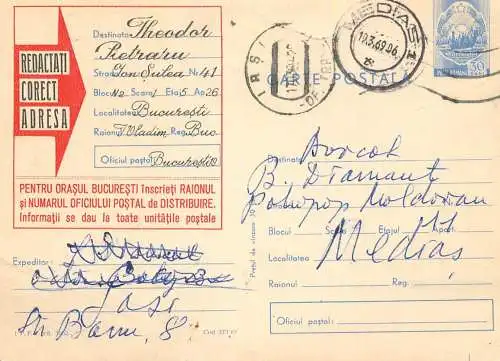 REDACTAȚI
CORECT
ADRESA
Destinatar Theodor
Petraru
Strada Ion Șulea Nr. 41
Blocul N2 Scara 1 Etaj 5 Ap 26
Localitatea București
Raionul T. Vladim. Reg. Buc
Oficiul poștal București
PENTRU ORAȘUL BUCUREȘTI înscrieți RAIONUL
și NUMĂRUL OFICIULUI POȘTAL de DISTRIBUIRE.
Informații se dau la toate unitățile poștale
Expeditor:
Iași
Str. Banu, 8
Cod
IAȘI
MEDIAȘ
19.3.69.06
50
CARTE POȘTALĂ
Prețul de vînzare 30
Destinatar Avocat
B. Diamant
Moldovan
Blocul Scara Etajul Apart.
Localitatea Mediaș
Raionul Reg.
Oficiul poștal: